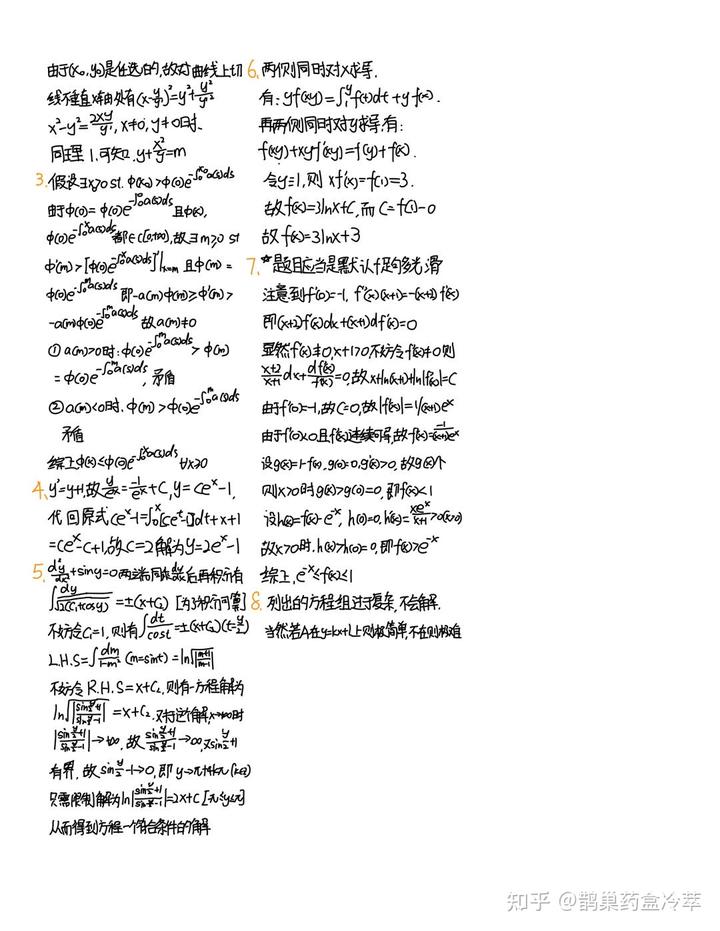 由于(x₀,y₀)是任选的,故对曲线上切
线不垂直x轴处有(x-y/y')²=y²+y²/y'²
x²-y²=2xy/y', x≠0, y≠0时.
同理1.可知 y+x²/y=m
3. 假设∃x₀>0 st. φ(x₀)>φ(0)e^{-∫₀^{x₀}a(s)ds}
由于φ(0)=φ(0)e^{-∫₀⁰a(s)ds}且φ(x),
φ(0)e^{-∫₀^x a(s)ds}都∈C[0,+∞),故∃m≥0 st
φ'(m)>[φ(0)e^{-∫₀^x a(s)ds}]'|x=m 且φ(m)=
φ(0)e^{-∫₀^m a(s)ds} 即-a(m)φ(m)≥φ'(m)>
-a(m)φ(0)e^{-∫₀^m a(s)ds} 故a(m)≠0
① a(m)>0时:φ(0)e^{-∫₀^m a(s)ds}>φ(m)
=φ(0)e^{-∫₀^m a(s)ds},矛盾
② a(m)<0时.φ(m)>φ(0)e^{-∫₀^m a(s)ds}
矛盾
综上φ(x)≤φ(0)e^{-∫₀^x a(s)ds} ∀x≥0
4. y'=y+1,故y/e^x=-1/e^x+C, y=Ce^x-1,
代回原式Ce^x-1=∫₀^x[Ce^t-1]dt+x+1
=Ce^x-C+1,故C=2解为y=2e^x-1
5. d²y/dx²+siny=0两边同乘dy后再积分有
∫dy/√(2(C₁+cosy))=±(x+C₂) [为了积分可算]
不妨令C₁=1,则有∫dt/cost=±(x+C₂)(t=y/2)
L.H.S=∫dm/(1-m²) (m=sint)=ln√|(m+1)/(m-1)|
不妨令R.H.S=x+C₂,则有一方程解为
ln√|(sin y/2+1)/(sin y/2-1)|=x+C₂.对这个解,x→+∞时
|(sin y/2+1)/(sin y/2-1)|→+∞,故(sin y/2+1)/(sin y/2-1)→∞,又sin y/2+1
有界,故sin y/2-1→0,即y→π+4kπ(k∈Z)
只需限制解为ln|(sin y/2+1)/(sin y/2-1)|=2x+C[-π≤y≤π]
从而得到方程一个符合条件的解
6. 两侧同时对x求导.
有:yf(xy)=∫₁^y f(t)dt+yf(x).
再两侧同时对y求导,有:
f(xy)+xyf'(xy)=f(y)+f(x).
令y=1,则 xf'(x)=f(1)=3.
故f(x)=3lnx+C,而C=f(1)-0
故f(x)=3lnx+3
7. *题目应当是默认f足够光滑
注意到f'(0)=-1, f''(x)(x+1)=-(x+2)f'(x)
即(x+2)f'(x)dx+(x+1)df'(x)=0
显然f'(x)≢0,x+1>0不妨令f'(x)≠0则
(x+2)/(x+1)dx+df'(x)/f'(x)=0,故x+ln(x+1)+ln|f'(x)|=C
由于f'(0)=-1,故C=0,故|f'(x)|=1/(x+1)e^x
由于f'(0)<0且f(x)连续可导,故f'(x)=-1/(x+1)e^x
设g(x)=1-f(x),g(0)=0,g'(x)>0,故g(x)个
则x>0时g(x)>g(0)=0,即f(x)<1
设h(x)=f(x)-e^{-x}, h(0)=0,h'(x)=xe^{-x}/(x+1)>0(x>0)
故x>0时,h(x)>h(0)=0,即f(x)>e^{-x}
综上,e^{-x}≤f(x)≤1
8. 列出的方程组过于复杂,不会解.
当然若A在y=kx+b上则极简单,不在则极难
知乎 @鹊巢药盒冷萃